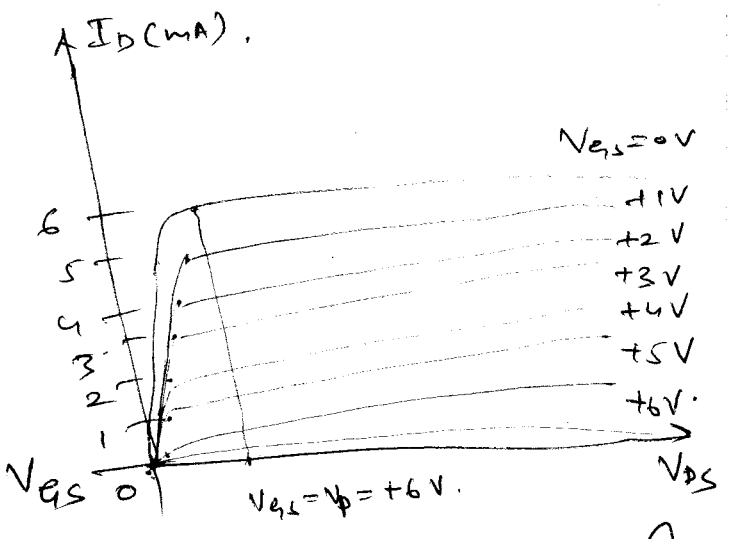 ID (mA).
VGS = 0V
+1V
+2V
+3V
+4V
+5V
+6V.
6
5
4
3
2
1
0
VGS
VDS
VGS = Vp = +6V.